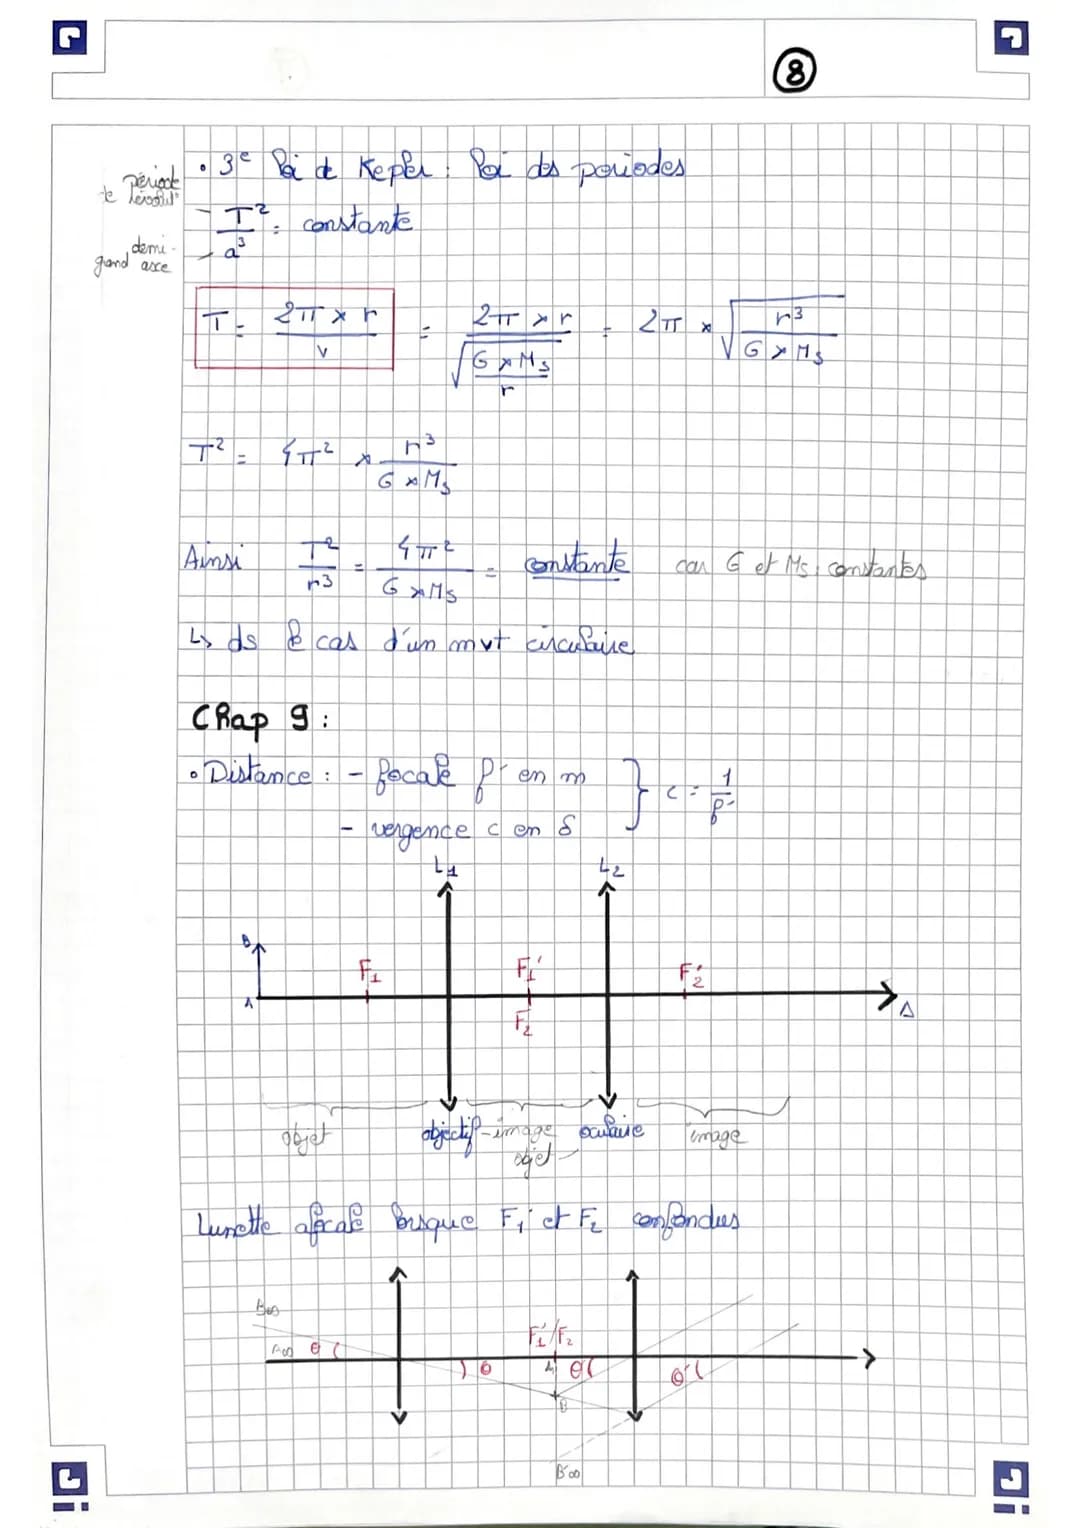 8
• 3e loi de Kepler : loi des periodes
période
de révolut°
T²/a³ = constante
demi-
grand axe
T = 2π × r / v = 2π × r / √(G × Ms / r) = 2π × √(r³ / G × Ms)
T² = 4π² × r³ / G × Ms
Ainsi T²/r³ = 4π² / G × Ms = constante car G et Ms : constantes
↳ ds le cas d'un mvt circulaire
Chap 9 :
• Distance : - focale f' en m
- vergence c en δ } c = 1/f'
L1 L2
B
F1 F1' F2'
A Δ
F2
objet objectif - image oculaire image
objet
Lunette afocale lorsque F1' et F2 confondus
B∞
F1'/F2
A∞ θ
θ A θ' θ'
B
B'∞